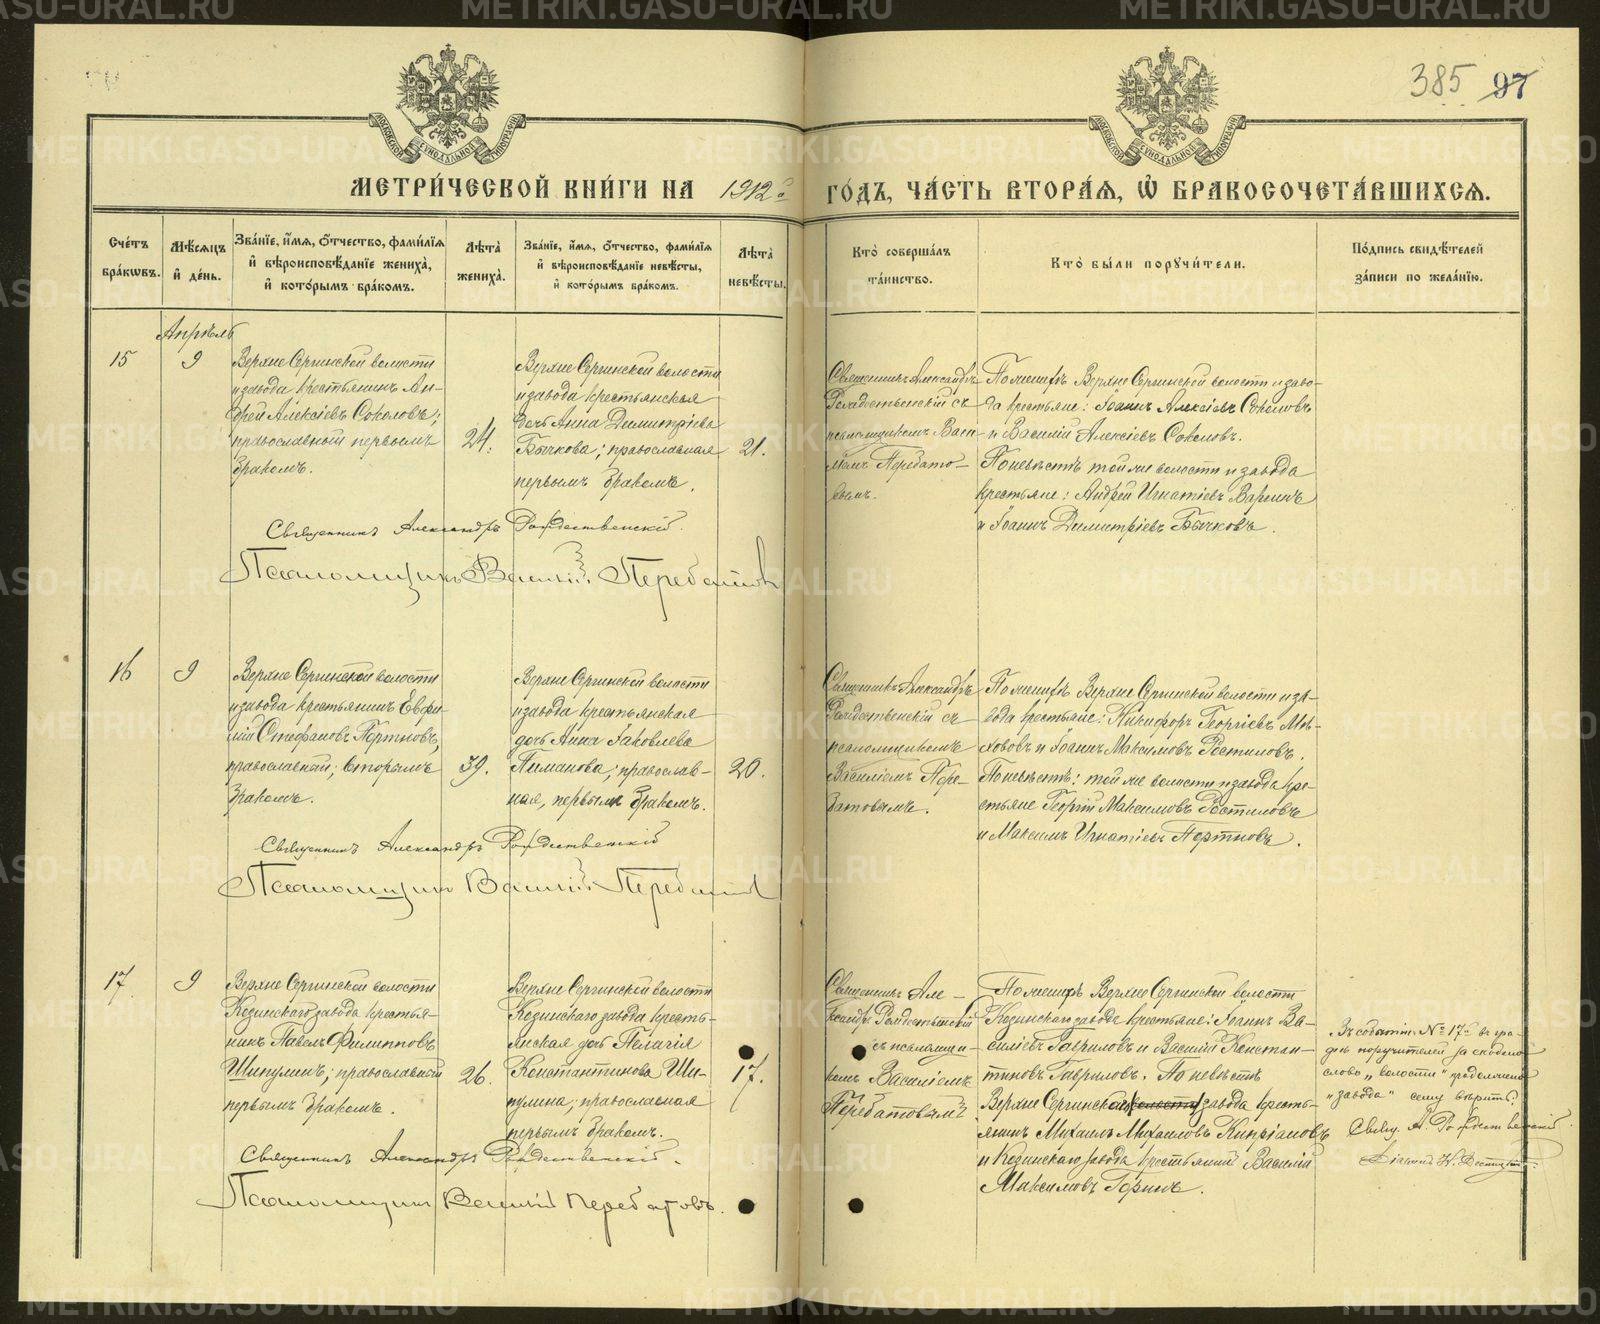 385 97
МЕТРИ́ЧЕСКОЙ КНИ́ГИ НА 1912 го́дъ, ЧА́СТЬ ВТОРА́Я, Ѡ҆ БРАКОСОЧЕТА́ВШИХСЯ.
Сче́тъ бра́кѡвъ.
Мѣ́сяцъ и҆ де́нь.
Зва́нїе, и҆́мя, ѻ҆́тчество, фами́лїя и҆ вѣроисповѣ́данїе жениха̀, и҆ кото́рымъ бра́комъ.
Лѣ́та жениха̀.
Зва́нїе, и҆́мя, ѻ҆́тчество, фами́лїя и҆ вѣроисповѣ́данїе невѣ́сты, и҆ кото́рымъ бра́комъ.
Лѣ́та невѣ́сты.
Кто̀ соверша́лъ та́инство.
Кто̀ бы́ли порꙋчи́тели.
По́дпись свидѣ́телей за́писи по жела́нїю.
Апрѣль
15
9
Верхне Сергинской волости
и завода крестьянинъ Ан-
дрей Алексіевъ Соколовъ;
православный первымъ
бракомъ.
24.
Верхне Сергинской волости
и завода крестьянская
дочь Анна Димитріева
Бычкова; православная
первымъ бракомъ.
21.
Священникъ Александръ
Рождественскій съ
псаломщикомъ Васи-
Перебато-
вымъ.
По женихѣ Верхне Сергинской волости и заво-
да крестьяне: Іоаннъ Алексіевъ Соколовъ
и Василій Алексіевъ Соколовъ.
По невѣстѣ той же волости и завода
крестьяне: Андрей Игнатіевъ
и Іоаннъ Димитріевъ Бычковъ.
Священникъ Александръ Рождественскій.
Псаломщикъ Василій Перебатовъ
16
9
Верхне Сергинской волости
и завода крестьянинъ Евфи-
мій Стефановъ Портновъ,
православный; вторымъ
бракомъ.
39.
Верхне Сергинской волости
и завода крестьянская
дочь Анна Іаковлева
Пиманова; православ-
ная, первымъ бракомъ.
20.
Священникъ Александръ
Рождественскій съ
псаломщикомъ
Василіемъ Пере-
батовымъ.
По женихѣ Верхне Сергинской волости и за-
вода крестьяне: Никифоръ Георгіевъ
и Іоаннъ Максимовъ Ростиловъ.
По невѣстѣ: той же волости и завода кре-
стьяне Георгій Максимовъ Ростиловъ
и Максимъ Игнатіевъ Портновъ.
Священникъ Александръ Рождественскій
Псаломщикъ Василій Перебатовъ
17.
9
Верхне Сергинской волости
Козинскаго завода крестья-
нинъ Павелъ Филипповъ
Шипулинъ; православный
первымъ бракомъ.
26.
Верхне Сергинской волости
Козинскаго завода кресть-
янская дочь Пелагія
Константинова Ши-
пулина; православная
первымъ бракомъ.
17.
Священникъ Але-
ксандръ Рождественскій
съ псаломщи-
комъ Василіемъ
Перебатовымъ
По женихѣ Верхне Сергинской волости
Козинскаго завода крестьяне: Іоаннъ Ва-
силіевъ Гавриловъ и Василій Констан-
тиновъ Гавриловъ. По невѣстѣ
Верхне Сергинской (волости) завода кресть-
янинъ Михаилъ Михаиловъ Кипріановъ
и Козинскаго завода крестьянинъ Василій
Максимовъ Горинъ.
Въ событіи № 17 въ гра-
фѣ поручителей за
слово „волости“ продолжено
„завода“ сему вѣрить.
Свящ. А. Рождественскій.
Діаконъ Н.
Священникъ Александръ Рождественскій.
Псаломщикъ Василій Перебатовъ.
METRIKI.GASO-URAL.RU